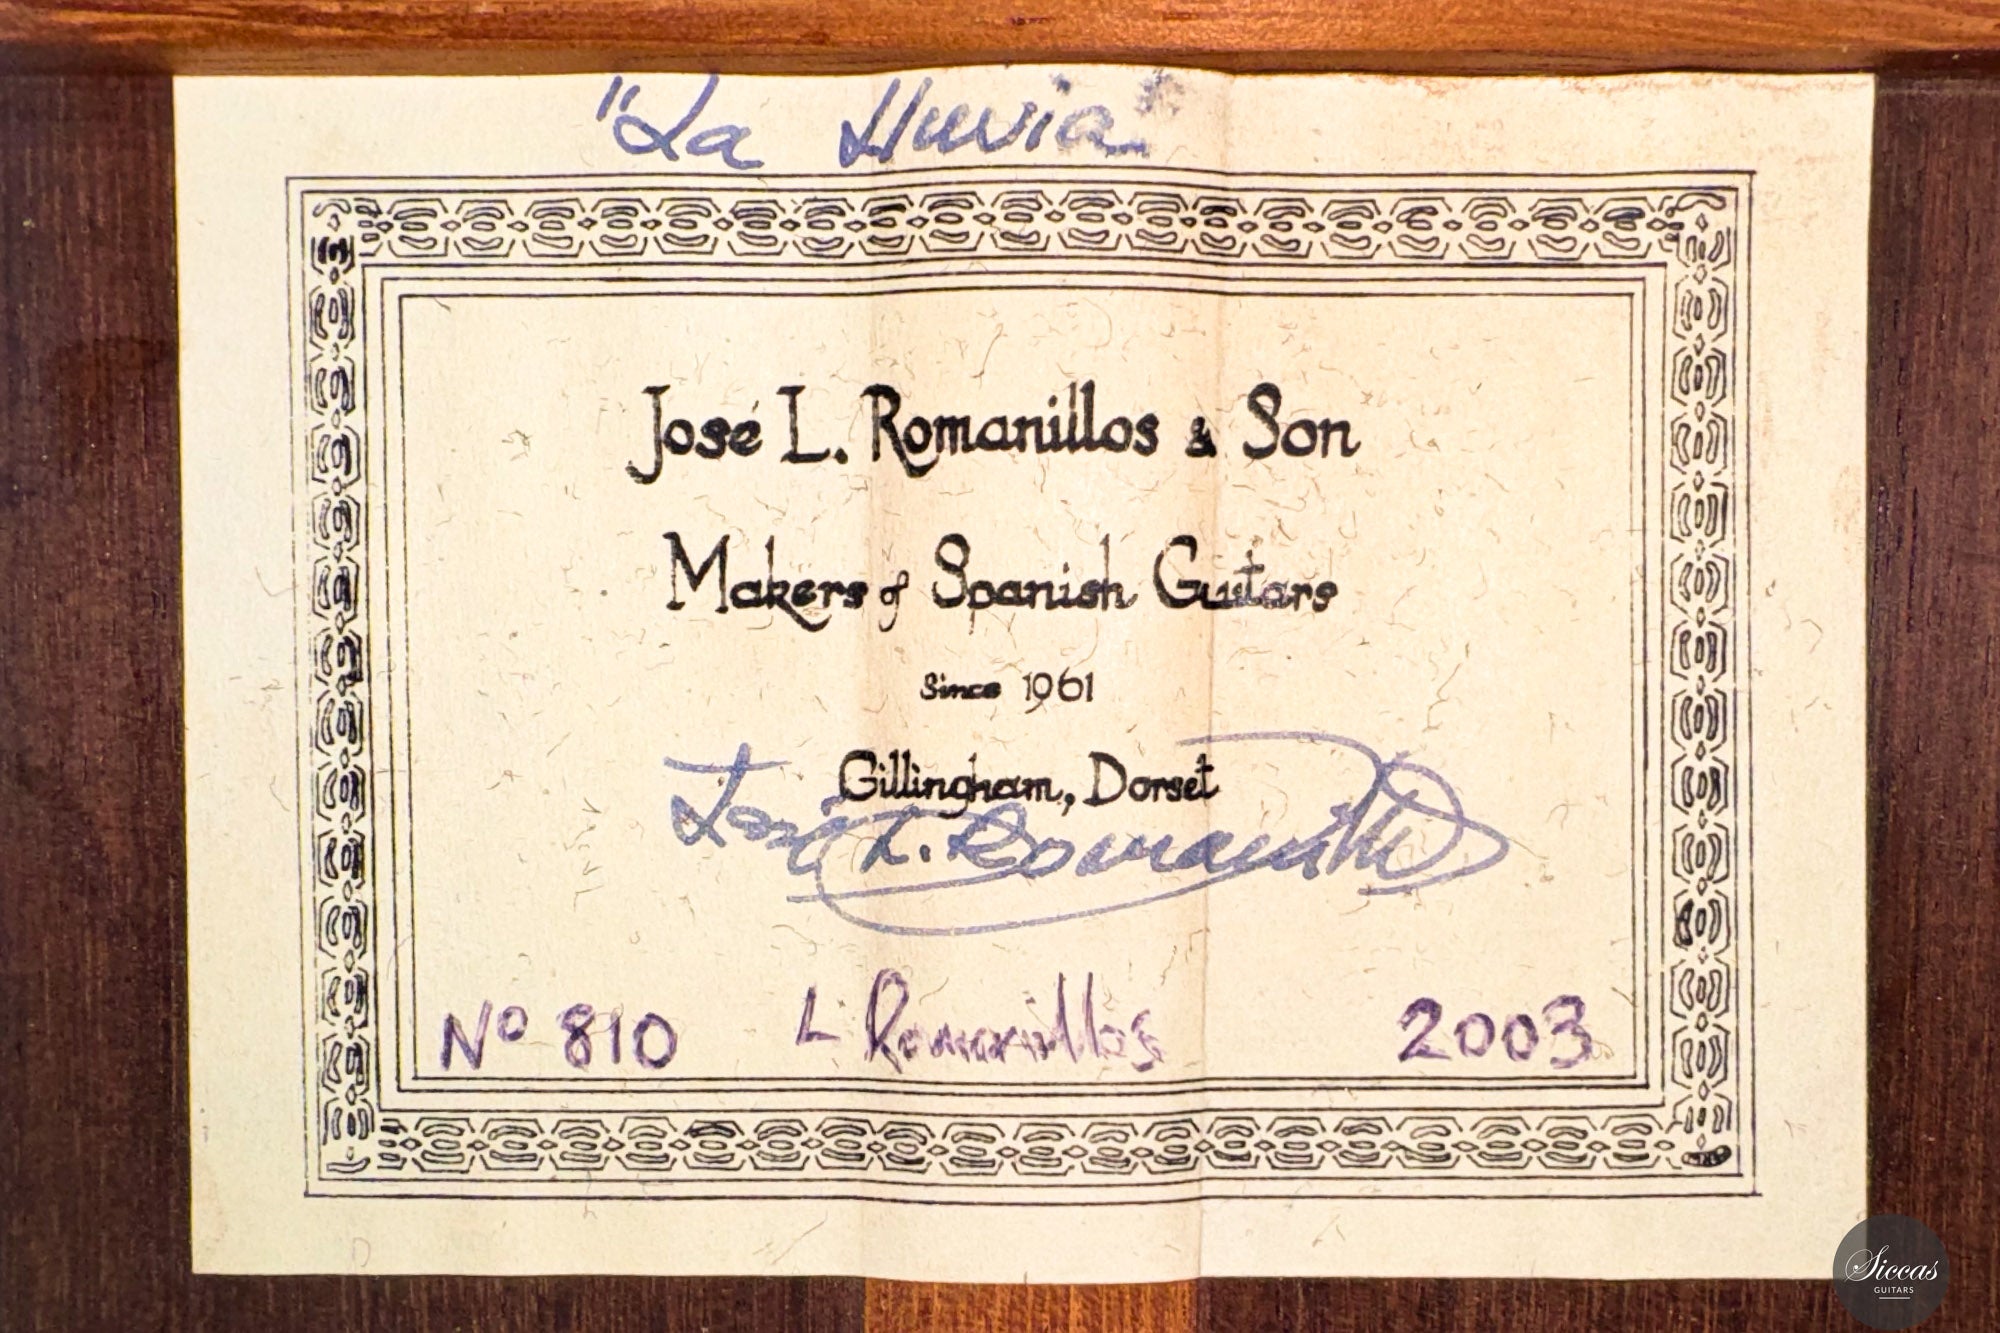 "La Lluvia"
José L. Romanillos & Son
Makers of Spanish Guitars
Since 1961
Gillingham, Dorset
José L. Romanillos
Nº 810 L Romanillos 2003
Siccas
GUITARS